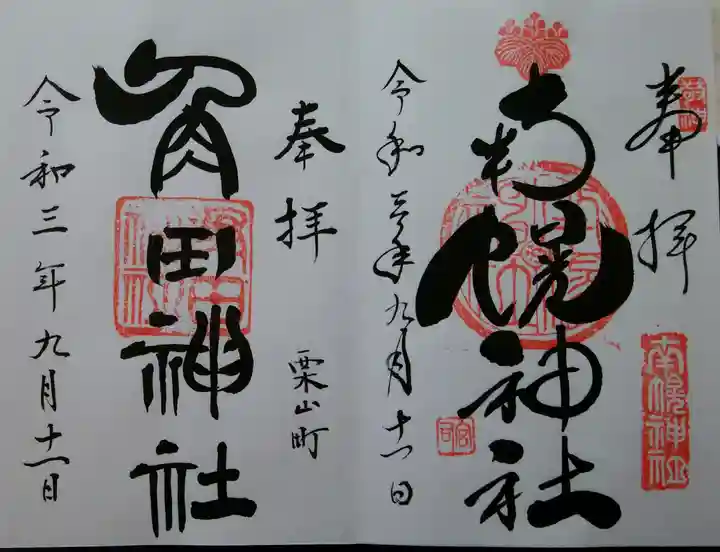 奉拝
南幌神社
令和三年九月十一日
南幌神社
宮司
奉拝
栗山町
角田神社
令和三年九月十一日